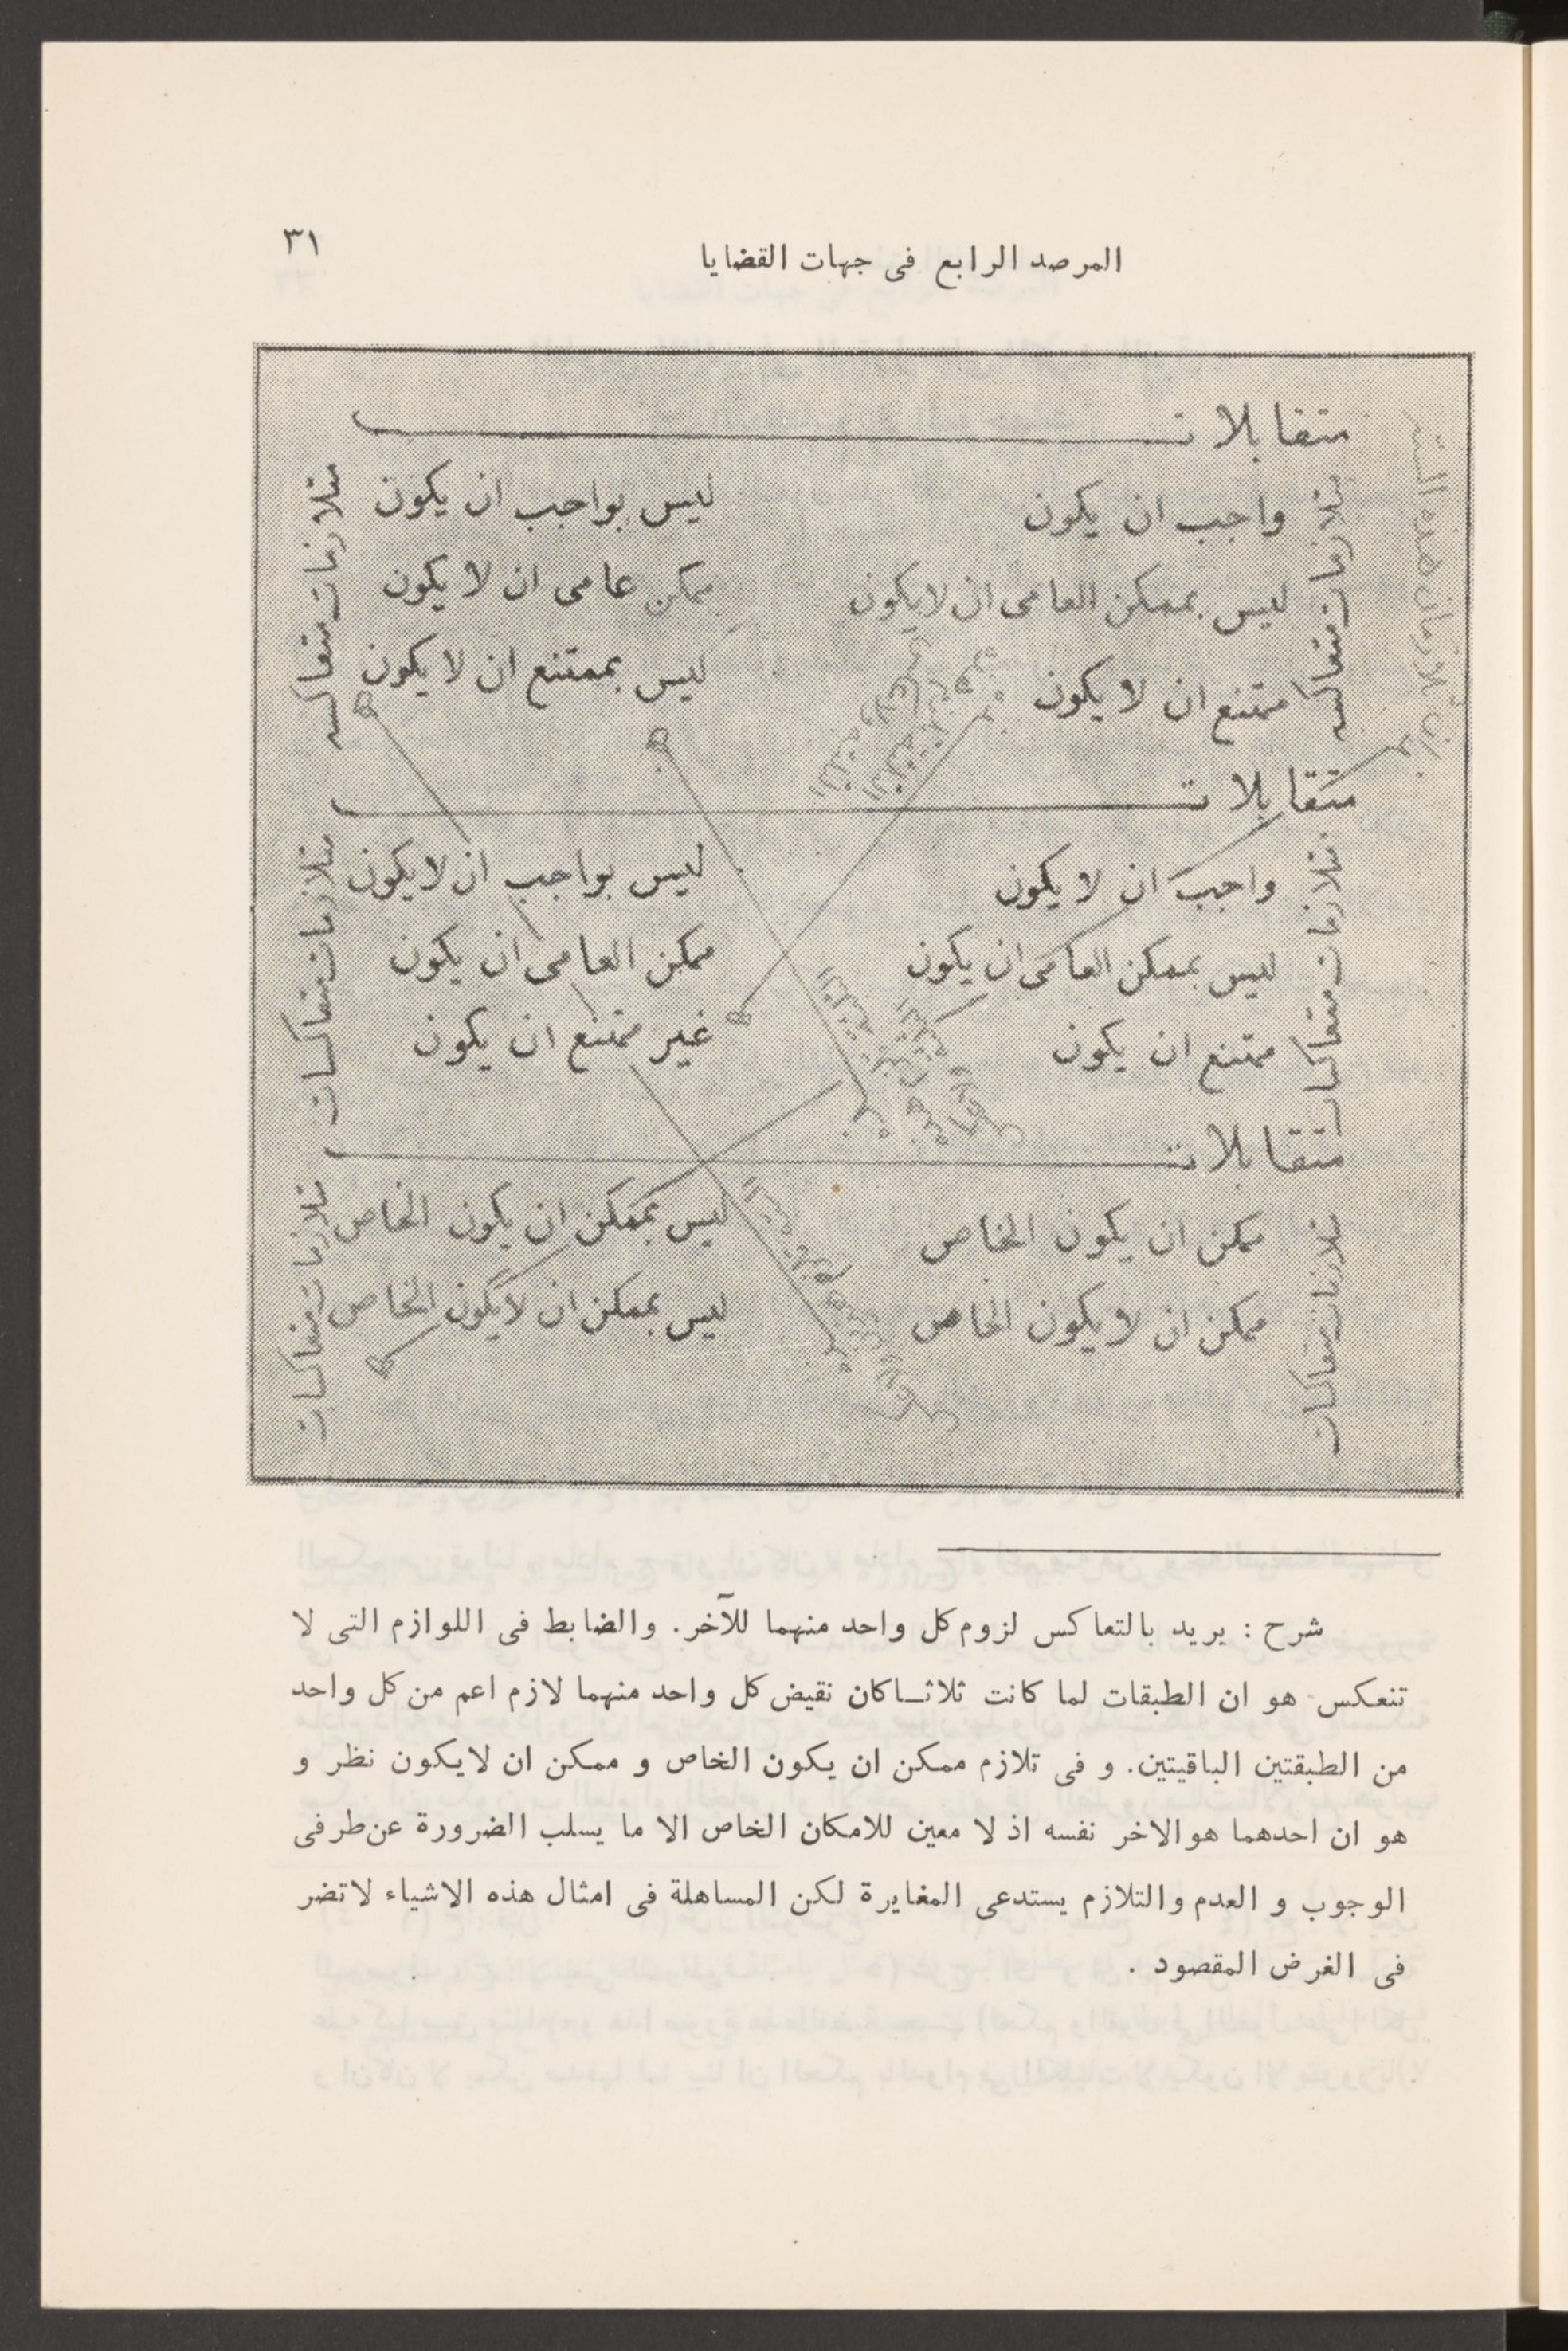 المرصد الرابع فى جهات القضايا
٣١
متقابلات
واجب ان يكون
ليس بواجب ان يكون
ليس بممكن العامى ان لايكون
ممكن عامى ان لا يكون
ممتنع ان لا يكون
ليس بممتنع ان لا يكون
متلازمات متعاكسه
متلازمات متعاكسه
متقابلات
واجب ان لا يكون
ليس بواجب ان لايكون
ليس بممكن العامى ان يكون
ممكن العامى ان يكون
ممتنع ان يكون
غير ممتنع ان يكون
متلازمات متعاكسات
متلازمات متعاكسات
متقابلات
ممكن ان يكون الخاص
ليس بممكن ان يكون الخاص
ممكن ان لا يكون الخاص
ليس بممكن ان لايكون الخاص
متلازمات متعاكسات
متلازمات متعاكسات
شرح : يريد بالتعاكس لزوم كل واحد منهما للآخر. والضابط فى اللوازم التى لا
تنعكس هو ان الطبقات لما كانت ثلاثـاكان نقيض كل واحد منهما لازم اعم من كل واحد
من الطبقتين الباقيتين. و فى تلازم ممكن ان يكون الخاص و ممكن ان لايكون نظر و
هو ان احدهما هوالاخر نفسه اذ لا معين للامكان الخاص الا ما يسلب الضرورة عن طرفى
الوجوب و العدم والتلازم يستدعى المغايرة لكن المساهلة فى امثال هذه الاشياء لاتضر
فى الغرض المقصود .